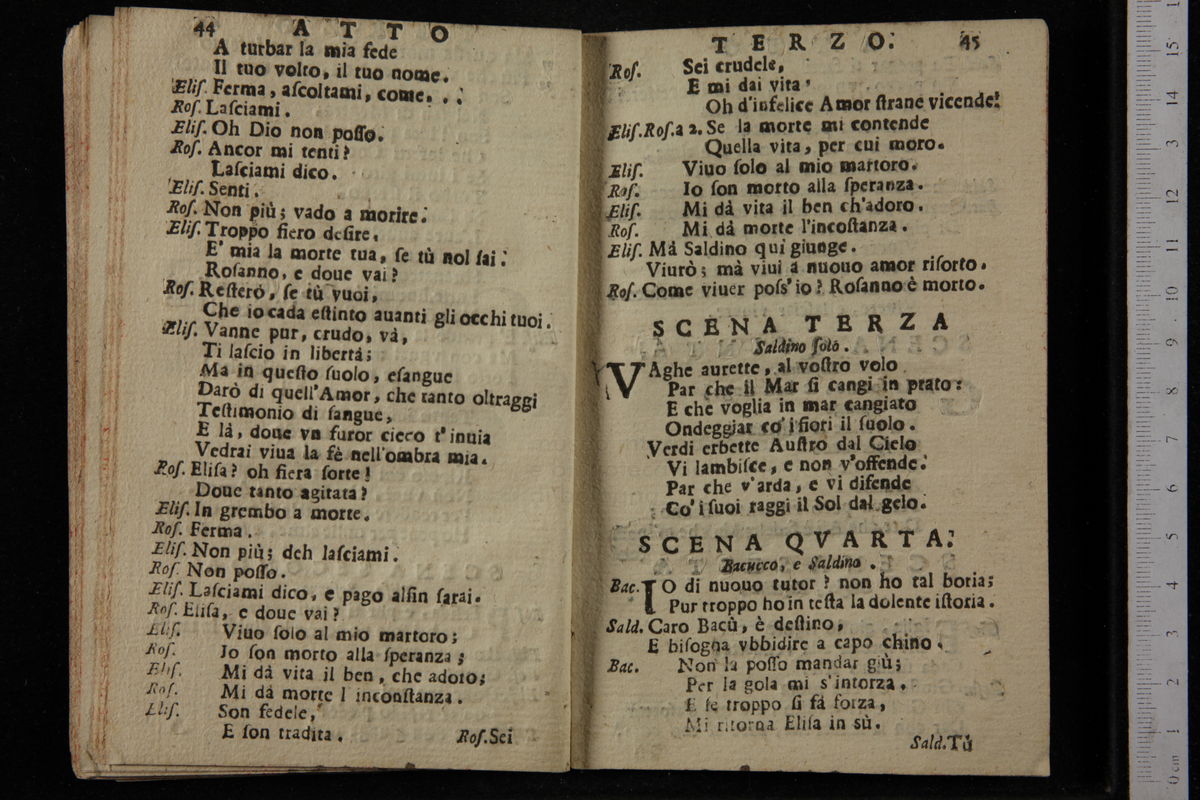 44 ATTO
A turbar la mia fede
Il tuo volto, il tuo nome.
Eliſ. Ferma, aſcoltami, come. . .
Roſ. Laſciami.
Eliſ. Oh Dio non poſſo.
Roſ. Ancor mi tenti?
Laſciami dico.
Eliſ. Senti.
Roſ. Non più; vado a morire.
Eliſ. Troppo fiero deſire.
E' mia la morte tua, ſe tù nol ſai.
Roſanno, e doue vai?
Roſ. Reſterò, ſe tù vuoi,
Che io cada eſtinto auanti gli occhi tuoi.
Eliſ. Vanne pur, crudo, và,
Ti laſcio in libertà;
Ma in queſto ſuolo, eſangue
Darò di quell'Amor, che tanto oltraggi
Teſtimonio di ſangue,
E là, doue vn furor cieco t'inuia
Vedrai viua la fè nell'ombra mia.
Roſ. Eliſa? oh fiera ſorte!
Doue tanto agitata?
Eliſ. In grembo a morte.
Roſ. Ferma.
Eliſ. Non più; deh laſciami.
Roſ. Non poſſo.
Eliſ. Laſciami dico, e pago alfin ſarai.
Roſ. Eliſa, e doue vai?
Eliſ. Viuo ſolo al mio martoro;
Roſ. Io ſon morto alla ſperanza;
Eliſ. Mi dà vita il ben, che adoro;
Roſ. Mi dà morte l'inconſtanza.
Eliſ. Son fedele,
E ſon tradita.
Roſ. Sei
TERZO. 45
Roſ. Sei crudele,
E mi dai vita,
Oh d'infelice Amor ſtrane vicende!
Eliſ. Roſ. a 2. Se la morte mi contende
Quella vita, per cui moro.
Eliſ. Viuo ſolo al mio martoro.
Roſ. Io ſon morto alla ſperanza.
Eliſ. Mi dà vita il ben ch'adoro.
Roſ. Mi dà morte l'incoſtanza.
Eliſ. Mà Saldino qui giunge.
Viurò; mà viui a nuouo amor riſorto.
Roſ. Come viuer poſs'io? Roſanno è morto.
SCENA TERZA
Saldino ſolo.
VAghe aurette, al voſtro volo
Par che il Mar ſi cangi in prato:
E che voglia in mar cangiato
Ondeggiar co' i fiori il ſuolo.
Verdi erbette Auſtro dal Cielo
Vi lambiſce, e non v'offende.
Par che v'arda, e vi difende
Co' i ſuoi raggi il Sol dal gelo.
SCENA QVARTA.
Bacucco, e Saldino.
Bac. IO di nuouo tutor? non ho tal boria;
Pur troppo ho in teſta la dolente iſtoria.
Sald. Caro Bacù, è deſtino,
E biſogna vbbidire a capo chino.
Bac. Non la poſſo mandar giù;
Per la gola mi s'intorza.
E ſe troppo ſi fà forza,
Mi ritorna Eliſa in sù.
Sald. Tù